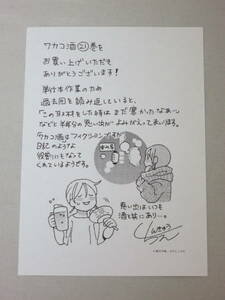 ワカコ酒㉑巻を
お買い上げいただき
ありがとうございます!
単行本作業のため
過去回を読み返していると、
「この取材をした時はまだ寒かったなあ〜」
などと半年分の思い出がよみがえってまいります。
ワカコ酒はフィクションですが
日記のような
役割にもなって
くれているようです。
思い出はいつも
酒と共にあり…。